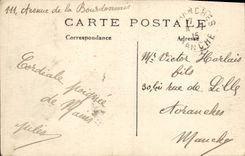 111 Avenue de la Bourdonnais
CARTE POSTALE
Correspondance
Adresse
AVRANCHES
MANCHE
Cordiale poignée
de Main
Jules
Mr Victor Harlais
fils
30, bis rue de Lille
Avranches
Manche